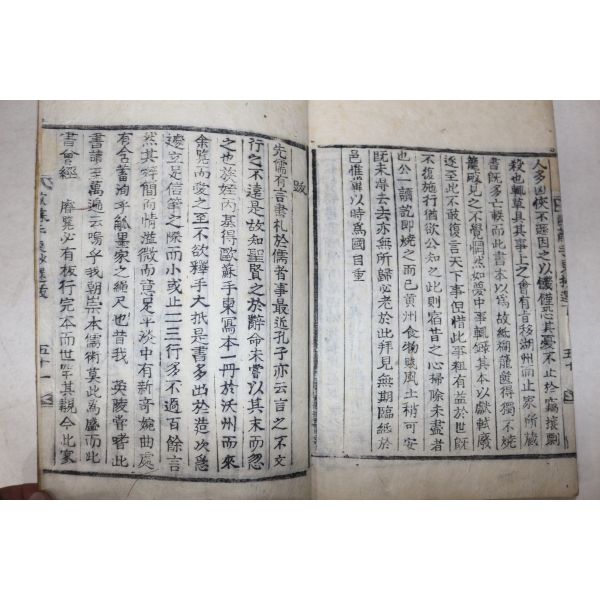 人多凶俠不
殺也輒草具其事上之會有言移湖州而止家所藏
書既多亡軼而此書本以為故紙
籠偶見之不覺惘然如夢中事輒錄其本以獻軾廢
逐至此不敢復言天下事但惜此事粗有益於世既
不復施行猶欲公知之此則宿昔之心掃除未盡者
也公一讀訖即燒之而已黃州食物賤風土稍可安
既未得去去亦無所歸必老於此拜見無期臨紙於
邑惟冀以時為國自重
跋
先儒有言書札於儒者事最近孔子亦云言之不文
行之不遠是故知聖賢之於辭命未嘗以其末而忽
之也族姪丙基得歐蘇手柬寫本一冊於沃州而來
余覽而愛之至不欲釋手大抵是書多出於造次急
遽立是信筆之際而小或止一二行多不過百餘言
然其辭簡而情溢微而意足平淡中有新奇婉曲處
有含蓄洵乎觚墨家之繩尺也昔我 英陵嘗睹此
書讀至萬遍云嗚乎我朝崇本儒術莫此為盛而此
書曾經 睿覽必有板行完本而世罕其覩今此家
五十
五十一